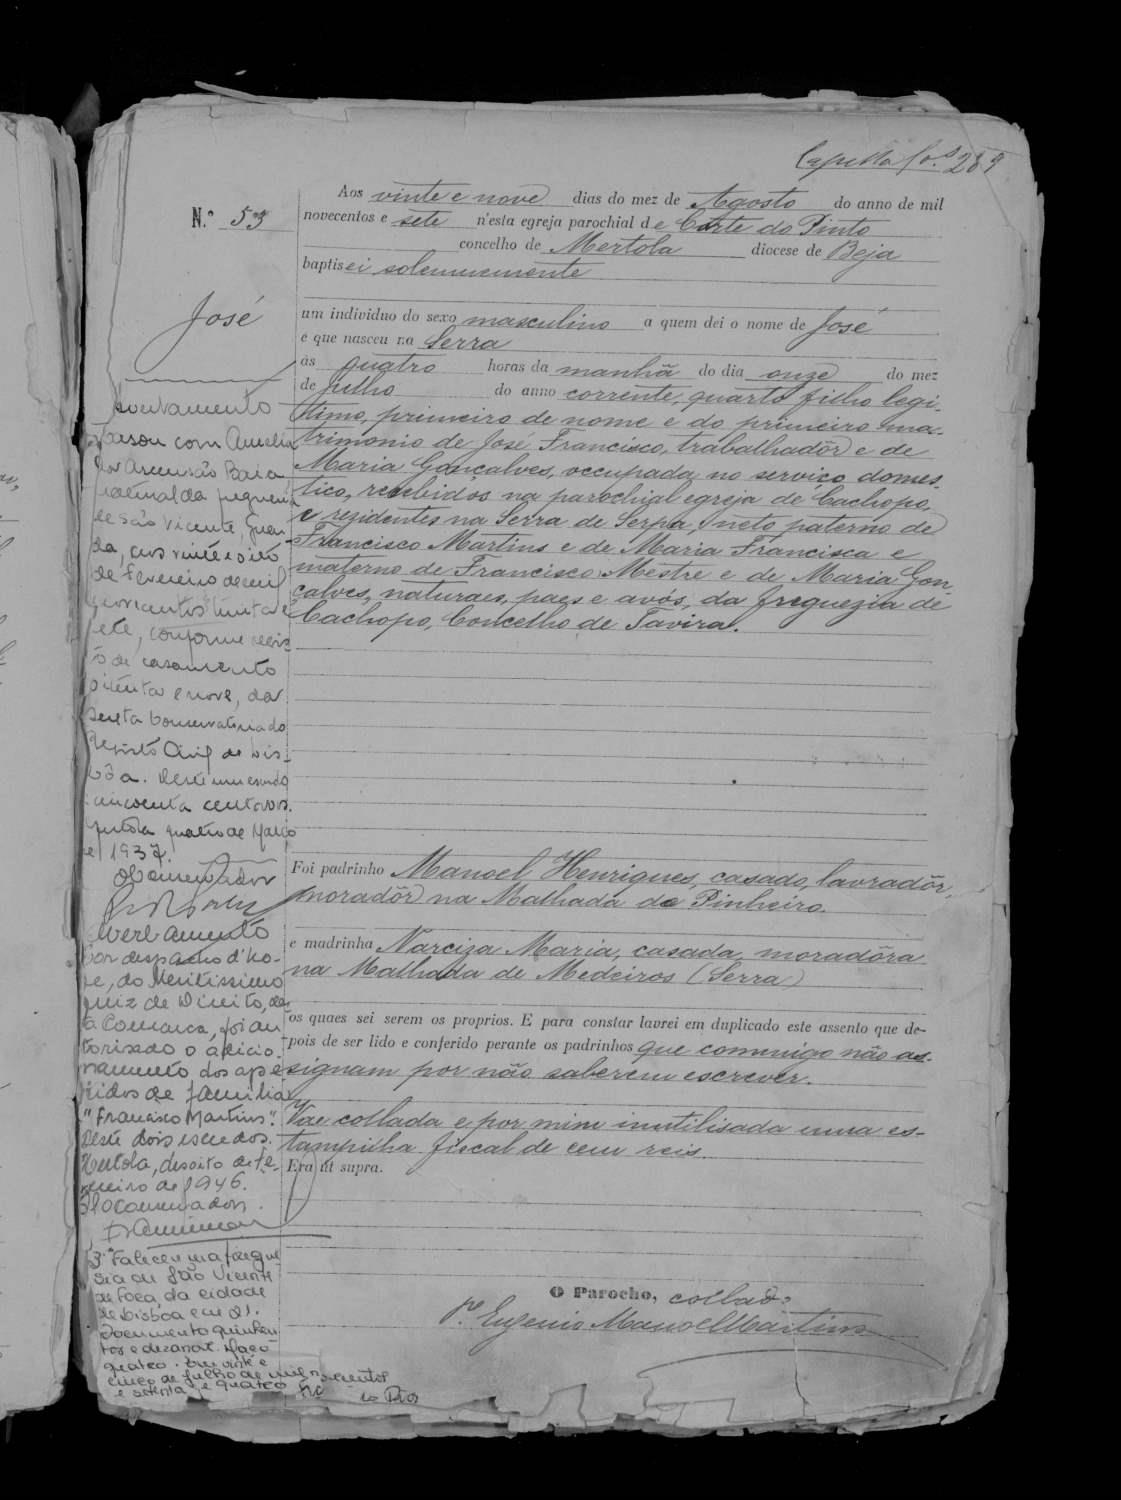 Capella fo. 289
N.º 53
José
Aos vinte e nove dias do mez de Agosto do anno de mil
novecentos e sete n'esta egreja parochial de Corte do Pinto
concelho de Mertola diocese de Beja
baptisei solemnemente
um individuo do sexo masculino a quem dei o nome de José
e que nasceu na Serra
ás quatro horas da manhã do dia onze do mez
de Julho do anno corrente, quarto filho legi-
timo, primeiro de nome e do primeiro ma-
trimonio de José Francisco, trabalhadôr e de
Maria Gonçalves, occupada no serviço domes-
tico, recebidos na parochial egreja de Cachopo,
e residentes na Serra de Serpa, neto paterno de
Francisco Martins e de Maria Francisca e
materno de Francisco Mestre e de Maria Gon-
çalves, naturaes, paes e avós, da freguezia de
Cachopo, Concelho de Tavira.
Foi padrinho Manoel Henriques, casado, lavradôr,
moradôr na Malhada do Pinheiro.
e madrinha Narciza Maria, casada, moradôra
na Malhada de Medeiros (Serra)
os quaes sei serem os proprios. E para constar lavrei em duplicado este assento que de-
pois de ser lido e conferido perante os padrinhos que commigo não as-
signam por não saberem escrever.
Vae collada e por mim inutilisada uma es-
tampilha fiscal de cem reis.
Era ut supra.
O Parocho, collado
P.e Eugenio Manoel Martins
Averbamento
Casou com Amelia
da Ascensão Baia
natural da freguesia
de São Vicente, Guar-
da, aos vinte e oito
de Fevereiro de mil
novecentos trinta e
sete, conforme regis-
to de casamento
oitenta e nove, da
sexta Conservatoria do
Registo Civil de Lis-
bôa. Desta um escudo
cincoenta centavos.
Mertola quatro de Março
de 1937.
O Conservador
Averbamento
Por despacho d'ho-
je, do Meritissimo
Juiz de Direito, des-
ta Comarca, foi au-
torisado o adicio-
namento dos ape-
lidos de familia
"Francisco Martins".
Deste dois escudos.
Mertola, desoito de Fe-
vereiro de 1946.
O Conservador
3.º Faleceu na fregue-
sia de São Vicente
de Fora, da cidade
de Lisboa em 21.
Documento quinhen-
tos e dezanove. Maço
quatro. Em vinte e
cinco de julho de mil novecentos
e setenta e quatro